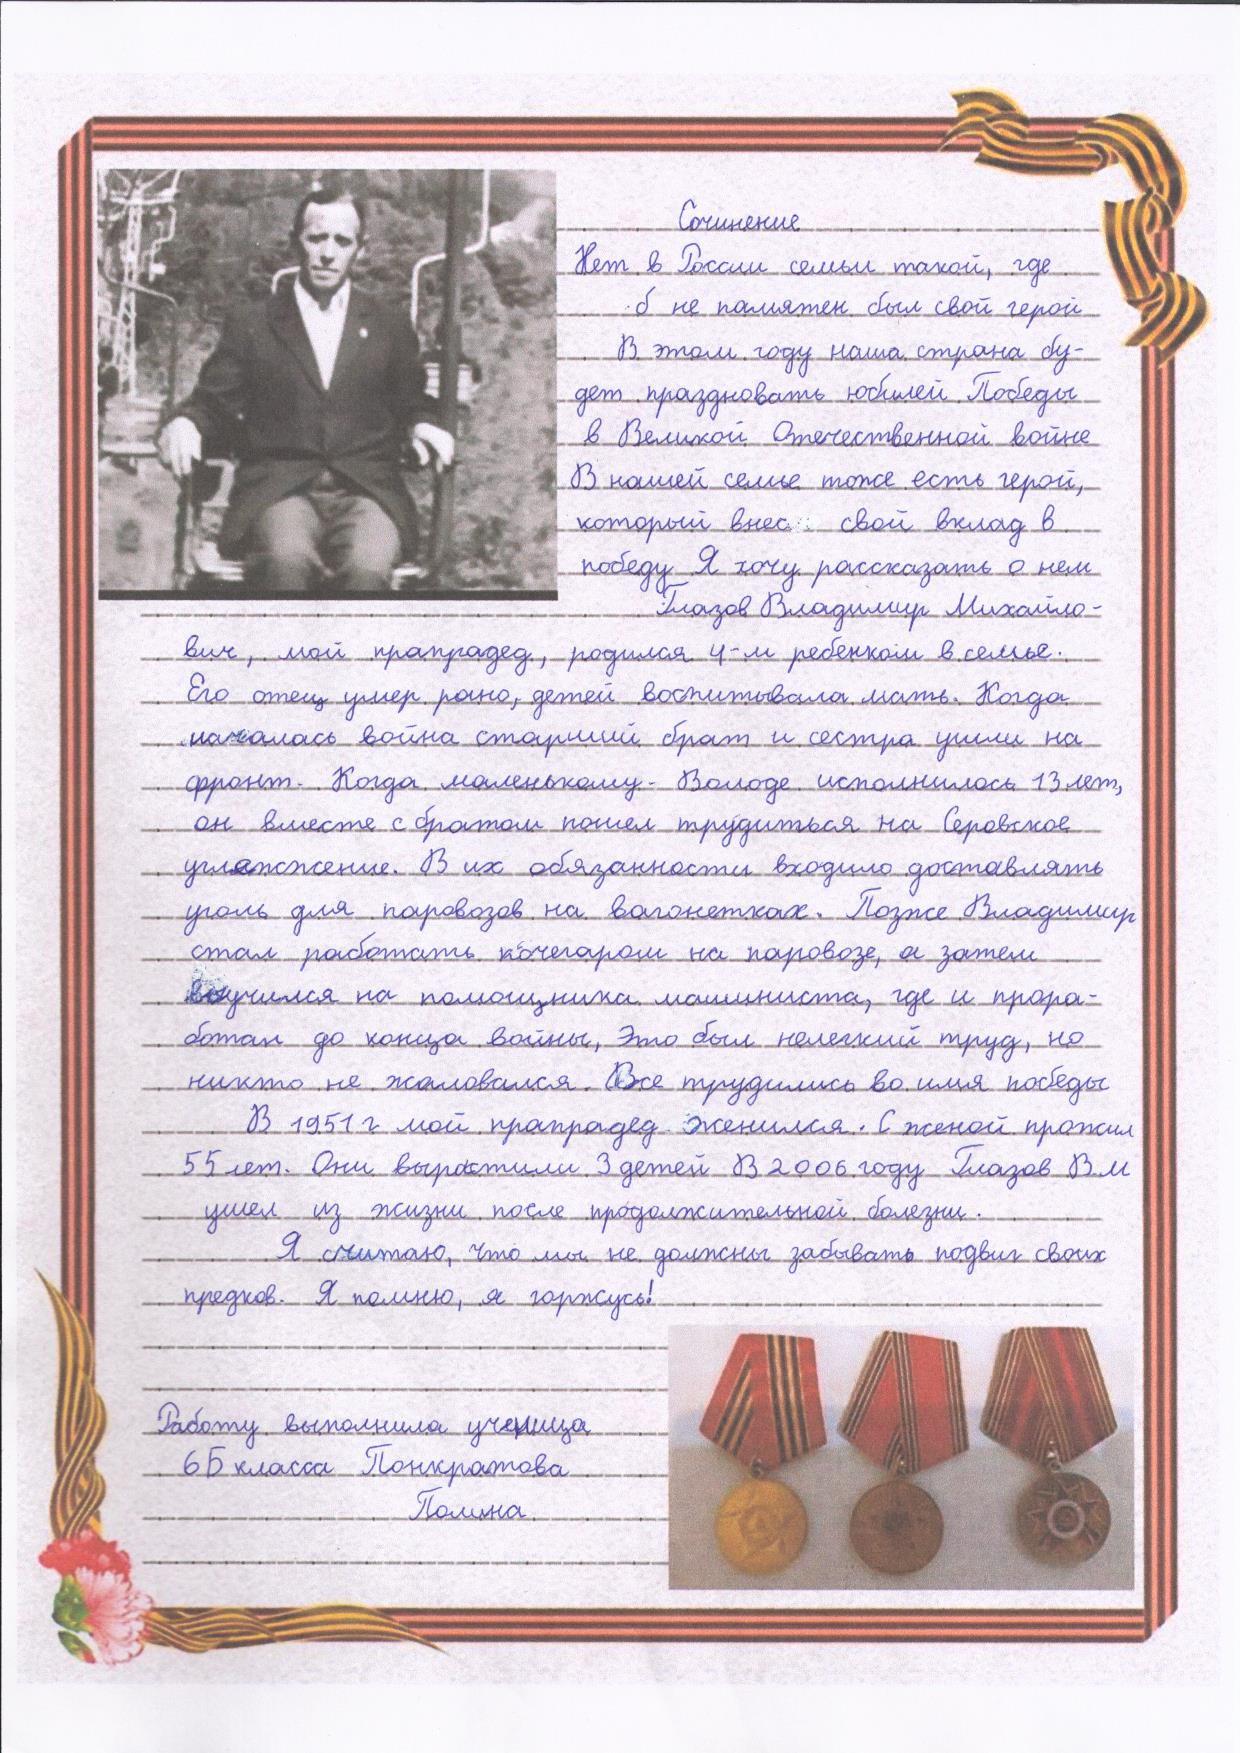 Сочинение
Нет в России семьи такой, где
б не памятен был свой герой
В этом году наша страна бу-
дет праздновать юбилей Победы
в Великой Отечественной войне
В нашей семье тоже есть герой,
который внес свой вклад в
победу Я хочу рассказать о нем
Глазов Владимир Михайло-
вич, мой прапрадед, родился 4-м ребенком в семье.
Его отец умер рано, детей воспитывала мать. Когда
началась война старший брат и сестра ушли на
фронт. Когда маленькому Володе исполнилось 13 лет,
он вместе с братом пошел трудиться на Серовское
углежжение. В их обязанности входило доставлять
уголь для паровозов на вагонетках. Позже Владимир
стал работать кочегаром на паровозе, а затем
выучился на помощника машиниста, где и прора-
ботал до конца войны, Это был нелегкий труд, но
никто не жаловался. Все трудились во имя победы
В 1951 г мой прапрадед женился. С женой прожил
55 лет. Они вырастили 3 детей В 2006 году Глазов В.М
ушел из жизни после продолжительной болезни.
Я считаю, что мы не должны забывать подвиг своих
предков. Я помню, я горжусь!
Работу выполнила ученица
6Б класса Понкратова
Полина